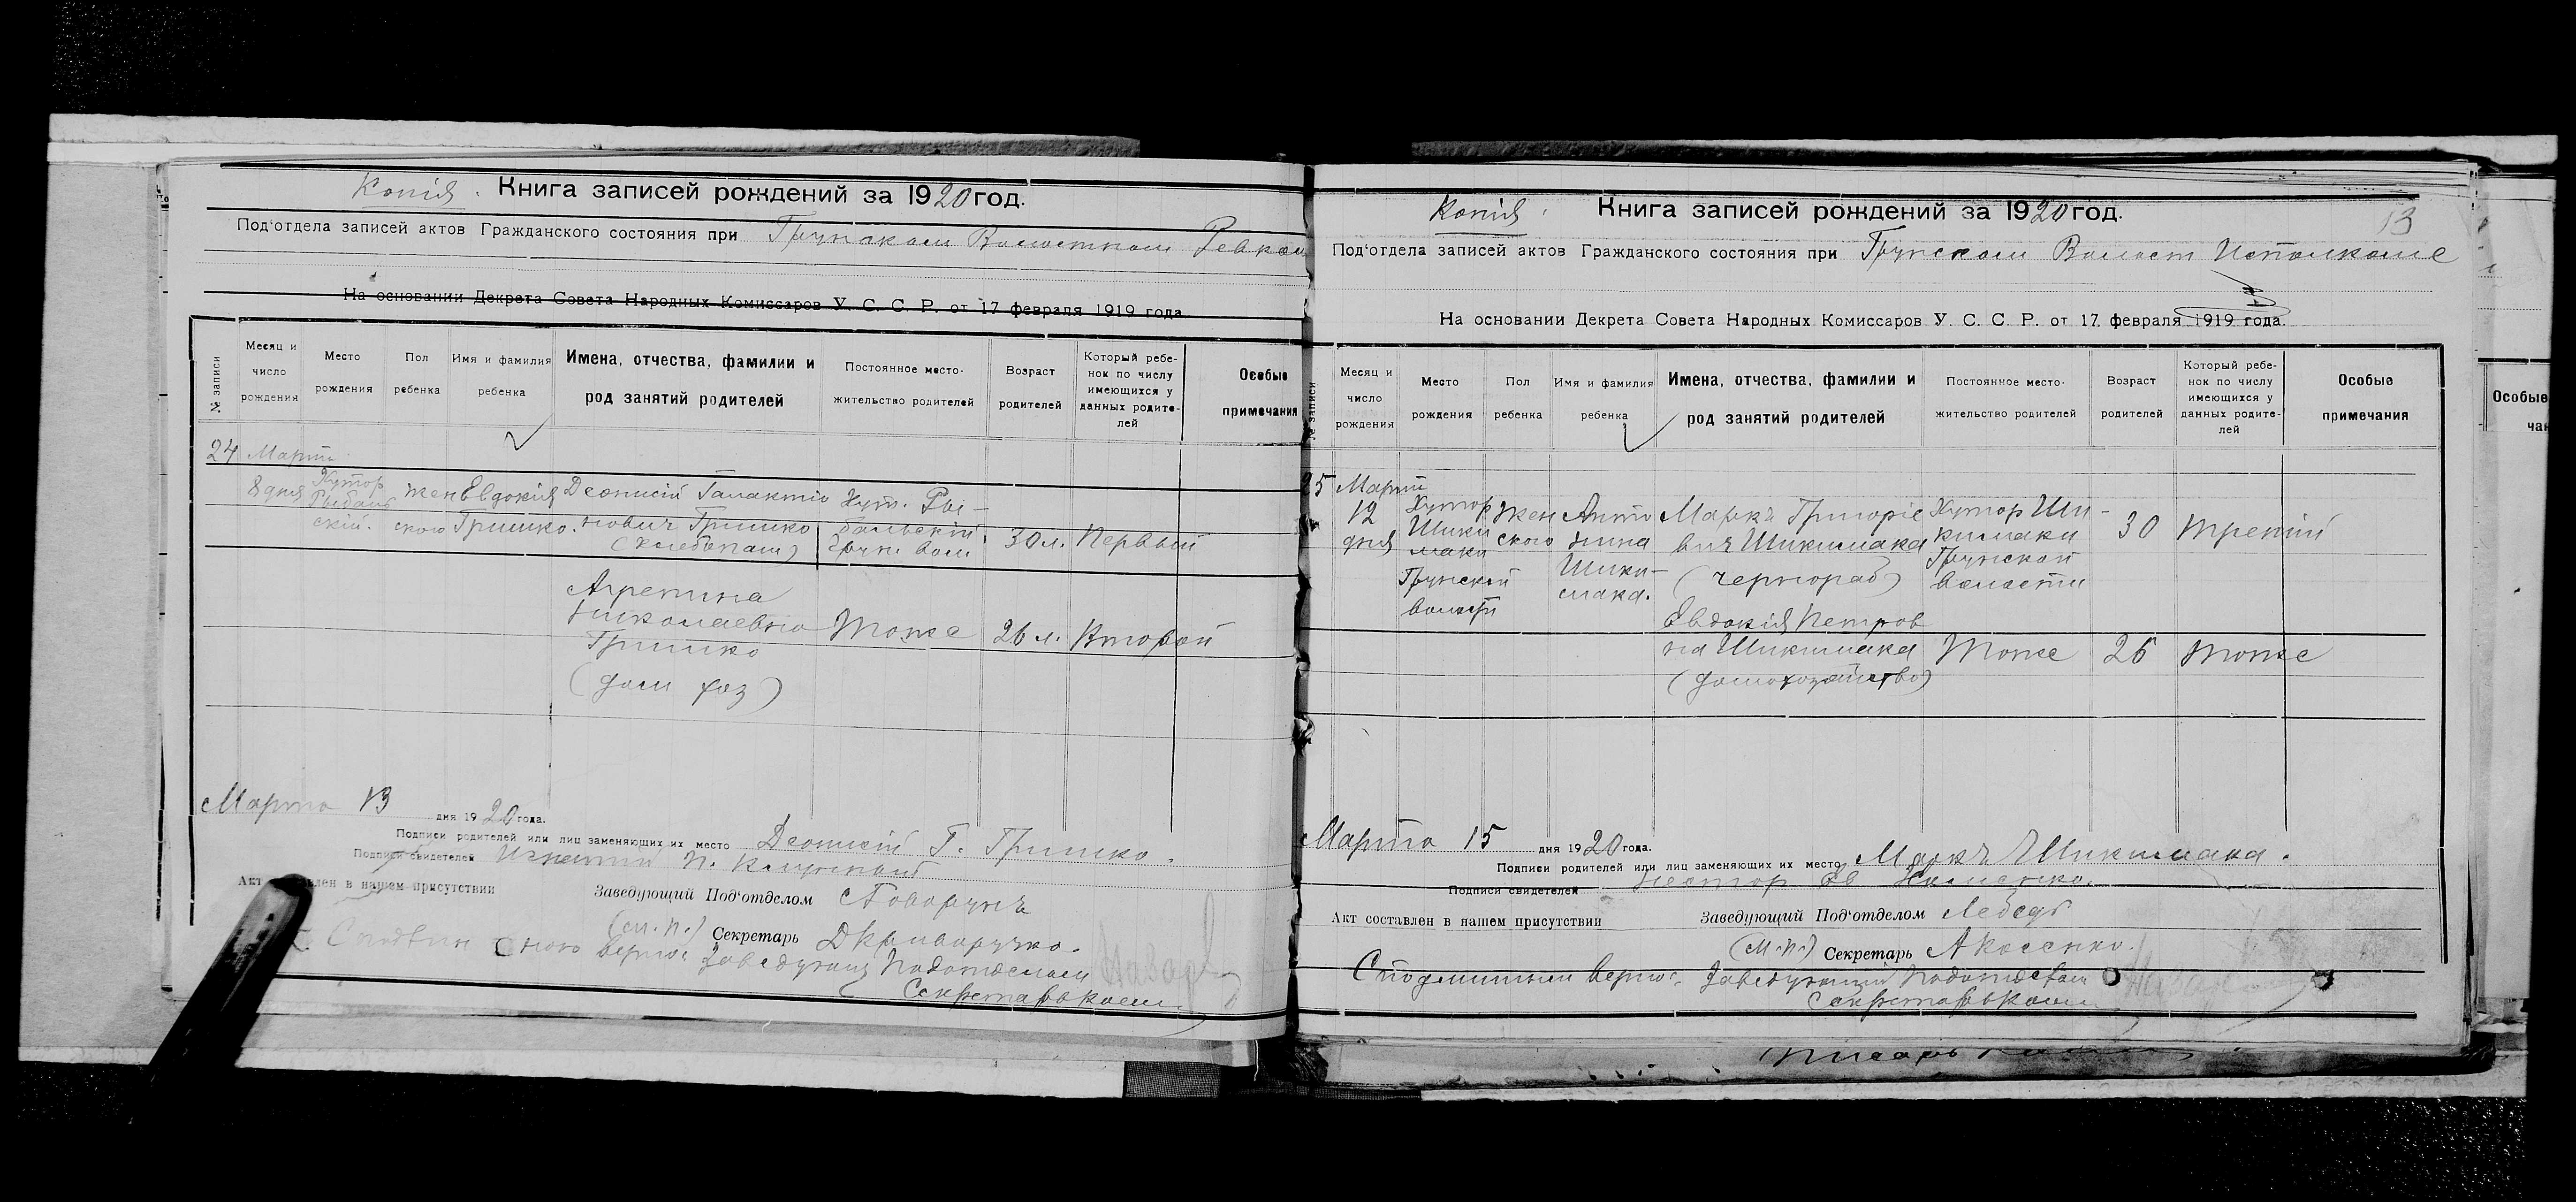 Копія. Книга записей рождений за 1920 год.
Под‘отдела записей актов Гражданского состояния при Грунском Волостном Ревком
На основании Декрета Совета Народных Комиссаров У. С. С. Р. от 17 февраля 1919 года
№ записи
Месяц и число рождения
Место рождения
Пол ребенка
Имя и фамилия ребенка
Имена, отчества, фамилии и род занятий родителей
Постоянное место-жительство родителей
Возраст родителей
Который ребе-нок по числу имеющихся у данных родите-лей
Особые примечания
24 Март
8 дня Хутор Рыбаль скій. жен ского Евдокія Гришко. Деонисій Галактіо нович Гришко (хлебопаш) Хут. Ры-бальскій Грун. вол 30 л. Первый
Агрепина
Николаевна
Гришко
(дом хоз)
Тоже 26 л. Второй
Марта 13 дня 1920 года.
Подписи родителей или лиц заменяющих их место Деонисій Г. Гришко.
Подписи свидетелей Игнатій П.
Акт в нашем присутствии
Заведующий Под‘отделом Говорунъ
(м.п.) Секретарь Д Криворучко.
верно: Заведующ Подотделом
Секретарь
Копія. Книга записей рождений за 1920 год.
13
Под‘отдела записей актов Гражданского состояния при Грунском Волост Исполкоме
На основании Декрета Совета Народных Комиссаров У. С. С. Р. от 17. февраля 1919 года.
№ записи
Месяц и число рождения
Место рождения
Пол ребенка
Имя и фамилия ребенка
Имена, отчества, фамилии и род занятий родителей
Постоянное место-жительство родителей
Возраст родителей
Который ребе-нок по числу имеющихся у данных родите-лей
Особые примечания
25 Март
12 дня Хутор Шики маки Грунской волости Жен ского Анто нина Шики-мака. Маркъ Григоріе вич Шикимака (чернораб) Хутор Ши-кимаки Грунской волости 30 третій
Евдокія Петров
на Шикимака
(домохозяйство)
Тоже 26 тоже
Марта 15 дня 1920 года.
Подписи родителей или лиц заменяющих их место Маркъ Шикимака.
Подписи свидетелей Нестор
Акт составлен в нашем присутствии
Заведующий Под‘отделом Лебедь
(м.п.) Секретарь А Косенко.
С подлинным верно: Заведующий Подотделом
Секретарь
Особые